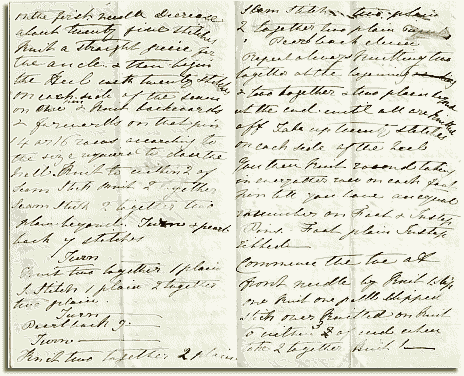 on the first needle Decrease
about twenty five stitches
Knit a straight piece for
the ancle & then begin
the Heel with twenty stitches
on each side of the seam
on one pin & knit backwards
& forwards on that pin
14 or 16 rows according to
the size required to close the
heel Knit to within 2 of
Seam Stitch Knit 2 together
Seam Stitch 2 together two
plain beyond Turn & pearl
back 7 stitches
Turn
Knit two together 1 plain
S. Stitch 1 plain 2 together
two plain
Turn
Pearl back 9
Turn
Knit two together 2 plain
Seam Stitch two plain
2 together two plain
Pearl back eleven
Repeat always knitting two
together at the beginning
& two together & two plain beyond
at the end until all are knitted
off Take up twenty stitches
on each side of the heel
You then knit round taking
in every other row on each foot
pin till you have an equal
number on Foot & Instep
Pins. Foot plain Instep
ribbed
Commence the toe at
front needle by Knit & slip
one knit one pull the slipped
stitch over knitted on Knit
to within 3 of end when
take 2 together Knit 1